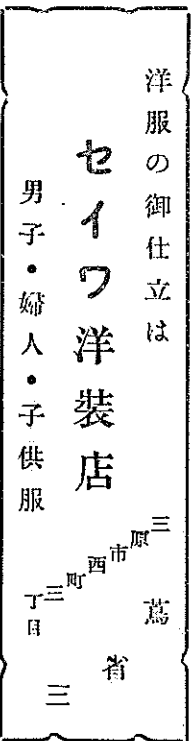 洋服の御仕立は
セイワ洋装店
男子・婦人・子供服
三原市西町三丁目
蔦省三